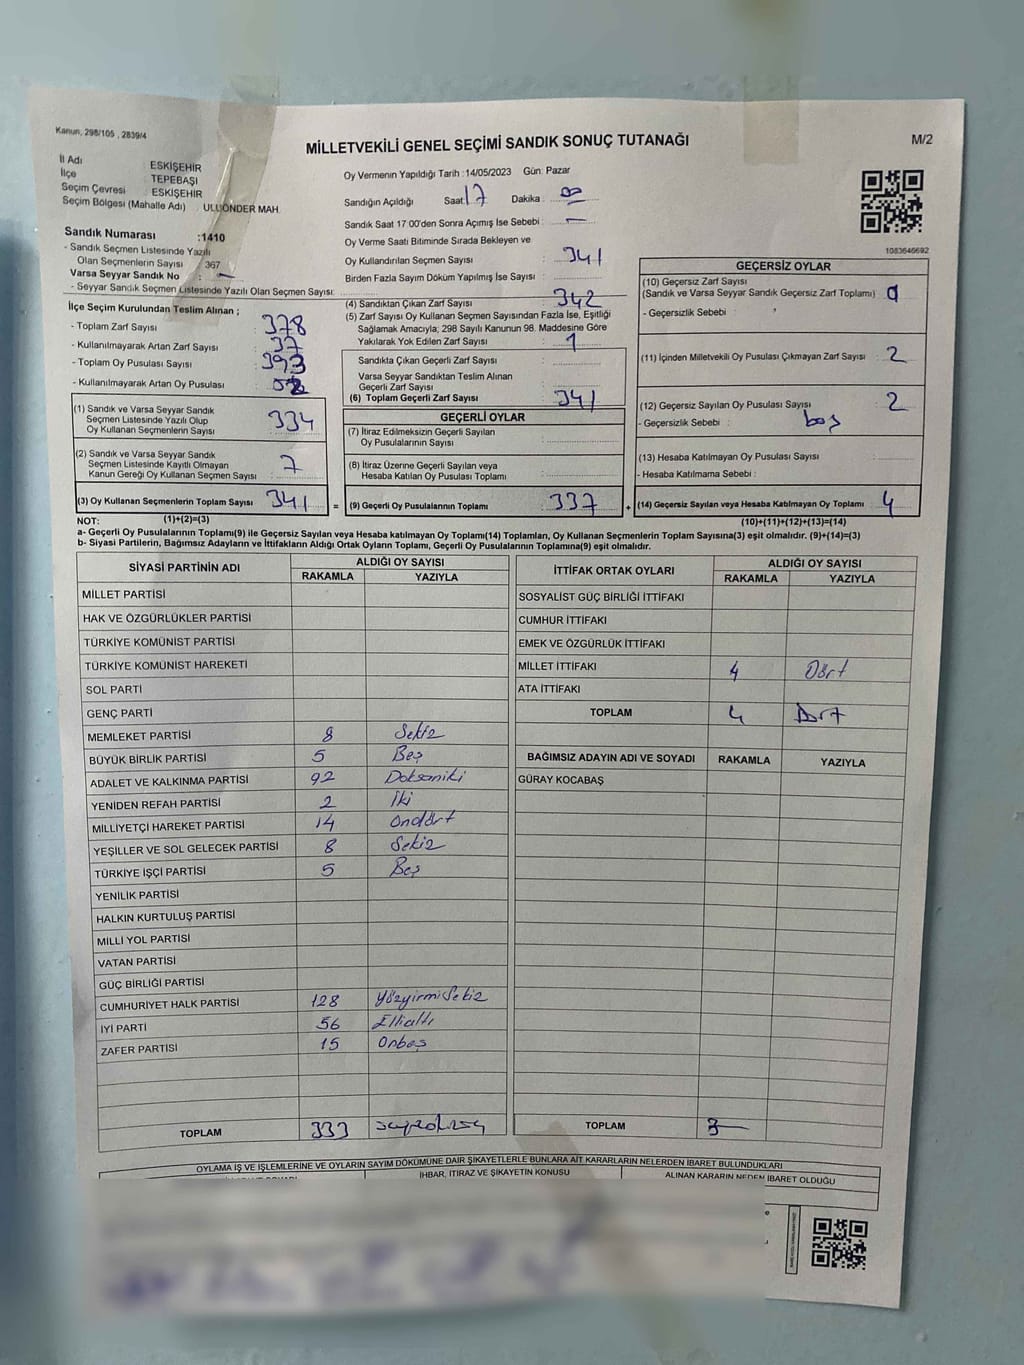 Kanun, 298/105 , 2839/4
MİLLETVEKİLİ GENEL SEÇİMİ SANDIK SONUÇ TUTANAĞI
M/2
İl Adı : ESKİŞEHİR
İlçe : TEPEBAŞI
Seçim Çevresi : ESKİŞEHİR
Seçim Bölgesi (Mahalle Adı) : ULUÖNDER MAH.
Oy Vermenin Yapıldığı Tarih : 14/05/2023 Gün: Pazar
Sandığın Açıldığı Saat 17 Dakika
Sandık Saat 17 00'den Sonra Açımış İse Sebebi : —
Oy Verme Saati Bitiminde Sırada Bekleyen ve
Oy Kullandırılan Seçmen Sayısı : 341
Birden Fazla Sayım Döküm Yapılmış İse Sayısı :
1083646692
Sandık Numarası :1410
- Sandık Seçmen Listesinde Yazılı
Olan Seçmenlerin Sayısı : 367
Varsa Seyyar Sandık No : —
- Seyyar Sandık Seçmen Listesinde Yazılı Olan Seçmen Sayısı:
İlçe Seçim Kurulundan Teslim Alınan ;
- Toplam Zarf Sayısı : 378
- Kullanılmayarak Artan Zarf Sayısı : 37
- Toplam Oy Pusulası Sayısı : 393
- Kullanılmayarak Artan Oy Pusulası :
(1) Sandık ve Varsa Seyyar Sandık
Seçmen Listesinde Yazılı Olup
Oy Kullanan Seçmenlerin Sayısı : 334
(2) Sandık ve Varsa Seyyar Sandık
Seçmen Listesinde Kayıtlı Olmayan
Kanun Gereği Oy Kullanan Seçmen Sayısı : 7
(3) Oy Kullanan Seçmenlerin Toplam Sayısı : 341
(1)+(2)=(3)
(4) Sandıktan Çıkan Zarf Sayısı : 342
(5) Zarf Sayısı Oy Kullanan Seçmen Sayısından Fazla İse, Eşitliği
Sağlamak Amacıyla; 298 Sayılı Kanunun 98. Maddesine Göre
Yakılarak Yok Edilen Zarf Sayısı : 1
Sandıkta Çıkan Geçerli Zarf Sayısı :
Varsa Seyyar Sandıktan Teslim Alınan
Geçerli Zarf Sayısı :
(6) Toplam Geçerli Zarf Sayısı : 341
GEÇERLİ OYLAR
(7) İtiraz Edilmeksizin Geçerli Sayılan
Oy Pusulalarının Sayısı :
(8) İtiraz Üzerine Geçerli Sayılan veya
Hesaba Katılan Oy Pusulası Toplamı :
= (9) Geçerli Oy Pusulalarının Toplamı : 337 +
GEÇERSİZ OYLAR
(10) Geçersiz Zarf Sayısı
(Sandık ve Varsa Seyyar Sandık Geçersiz Zarf Toplamı) :
- Geçersizlik Sebebi :
(11) İçinden Milletvekili Oy Pusulası Çıkmayan Zarf Sayısı : 2
(12) Geçersiz Sayılan Oy Pusulası Sayısı : 2
- Geçersizlik Sebebi : boş
(13) Hesaba Katılmayan Oy Pusulası Sayısı :
- Hesaba Katılmama Sebebi :
(14) Geçersiz Sayılan veya Hesaba Katılmayan Oy Toplamı : 4
(10)+(11)+(12)+(13)=(14)
NOT:
a- Geçerli Oy Pusulalarının Toplamı(9) ile Geçersiz Sayılan veya Hesaba katılmayan Oy Toplamı(14) Toplamları, Oy Kullanan Seçmenlerin Toplam Sayısına(3) eşit olmalıdır. (9)+(14)=(3)
b- Siyasi Partilerin, Bağımsız Adayların ve İttifakların Aldığı Ortak Oyların Toplamı, Geçerli Oy Pusulalarının Toplamına(9) eşit olmalıdır.
SİYASİ PARTİNİN ADI ALDIĞI OY SAYISI
RAKAMLA YAZIYLA
MİLLET PARTİSİ
HAK VE ÖZGÜRLÜKLER PARTİSİ
TÜRKİYE KOMÜNİST PARTİSİ
TÜRKİYE KOMÜNİST HAREKETİ
SOL PARTİ
GENÇ PARTİ
MEMLEKET PARTİSİ 8 Sekiz
BÜYÜK BİRLİK PARTİSİ 5 Beş
ADALET VE KALKINMA PARTİSİ 92 Doksaniki
YENİDEN REFAH PARTİSİ 2 İki
MİLLİYETÇİ HAREKET PARTİSİ 14 Ondört
YEŞİLLER VE SOL GELECEK PARTİSİ 8 Sekiz
TÜRKİYE İŞÇİ PARTİSİ 5 Beş
YENİLİK PARTİSİ
HALKIN KURTULUŞ PARTİSİ
MİLLİ YOL PARTİSİ
VATAN PARTİSİ
GÜÇ BİRLİĞİ PARTİSİ
CUMHURİYET HALK PARTİSİ 128 Yüzyirmisekiz
İYİ PARTİ 56 Ellialtı
ZAFER PARTİSİ 15 Onbeş
TOPLAM 333
İTTİFAK ORTAK OYLARI ALDIĞI OY SAYISI
RAKAMLA YAZIYLA
SOSYALİST GÜÇ BİRLİĞİ İTTİFAKI
CUMHUR İTTİFAKI
EMEK VE ÖZGÜRLÜK İTTİFAKI
MİLLET İTTİFAKI 4 Dört
ATA İTTİFAKI
TOPLAM 4 Dört
BAĞIMSIZ ADAYIN ADI VE SOYADI RAKAMLA YAZIYLA
GÜRAY KOCABAŞ
TOPLAM
OYLAMA İŞ VE İŞLEMLERİNE VE OYLARIN SAYIM DÖKÜMÜNE DAİR ŞİKAYETLERLE BUNLARA AİT KARARLARIN NELERDEN İBARET BULUNDUKLARI
İHBAR, İTİRAZ VE ŞİKAYETİN KONUSU
ALINAN KARARIN NEDEN İBARET OLDUĞU